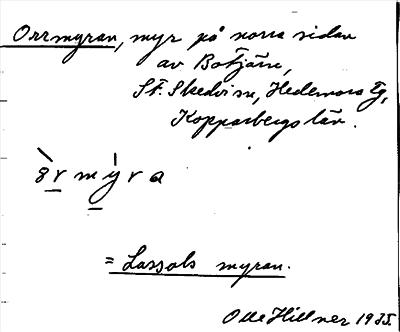 Orrmyran, myr på norra sidan
av Botjärn,
St. Skedvi sn, Hedemora tg,
Kopparbergs län.
ö̀r m ý r a
= Lassols myran.
Olle Hillner 1935.